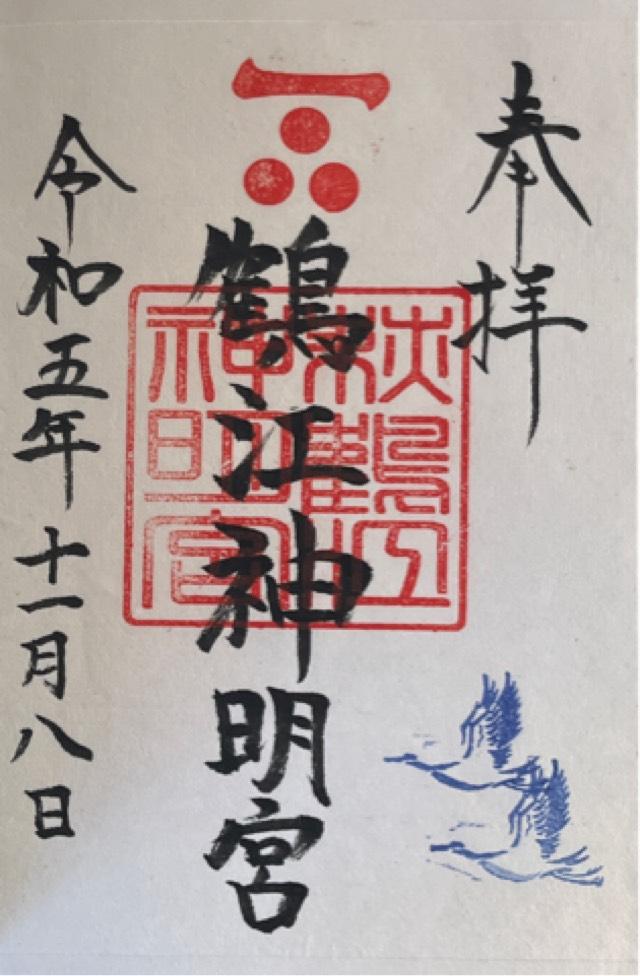 奉拝
鶴江神明宮
鶴江
神明宮
令和五年十一月八日